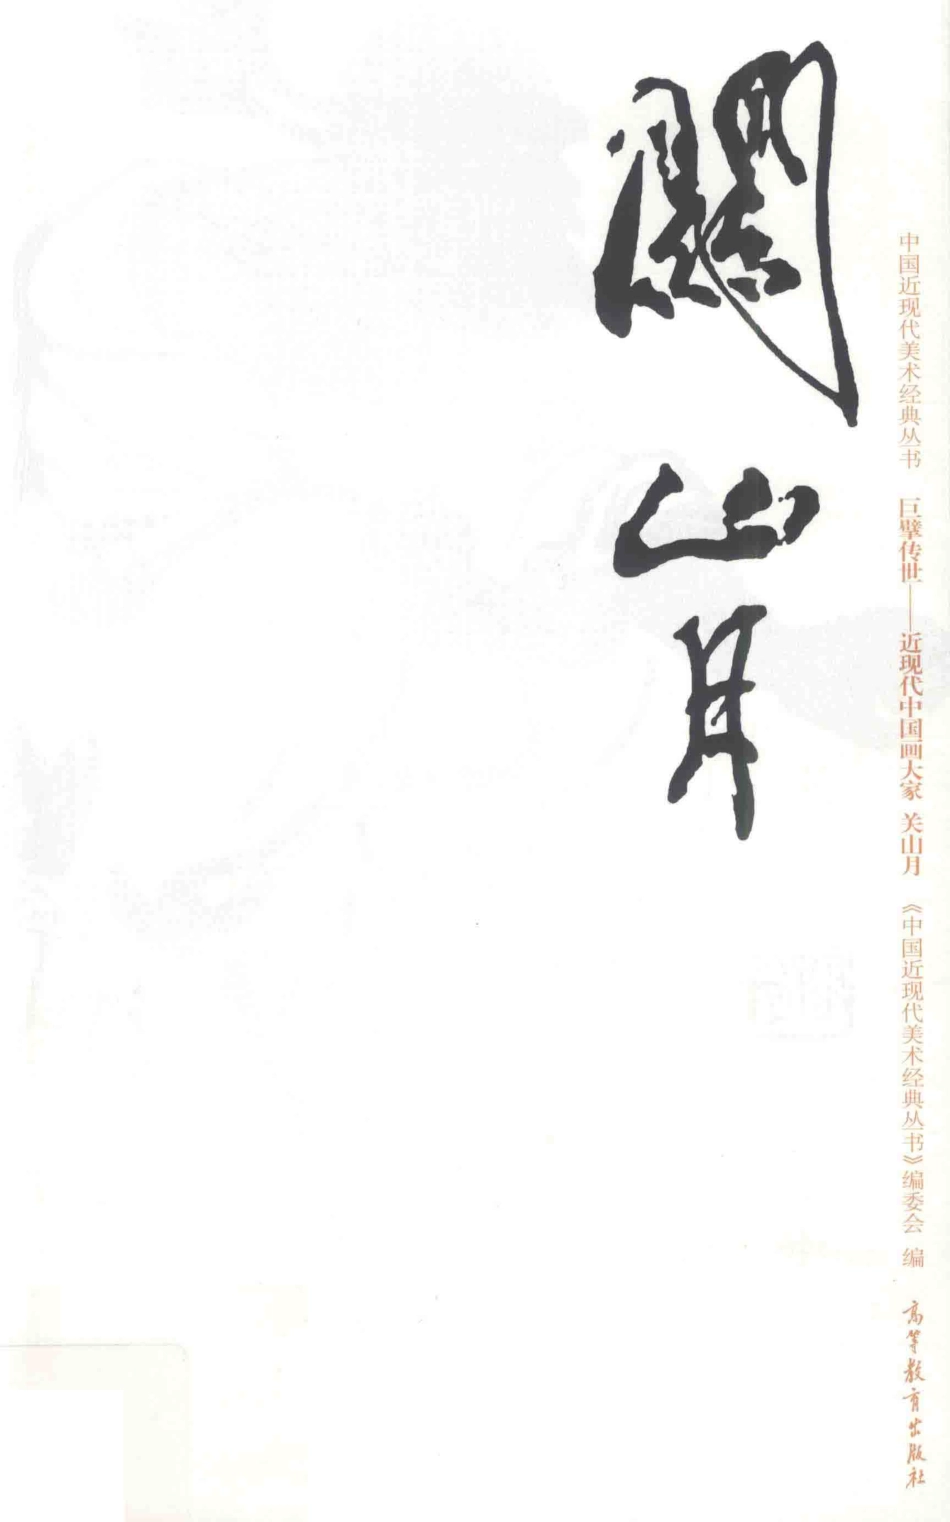 關山月
中国近现代美术经典丛书 巨擘传世——近现代中国画大家 关山月 《中国近现代美术经典丛书》编委会 编
高等教育出版社